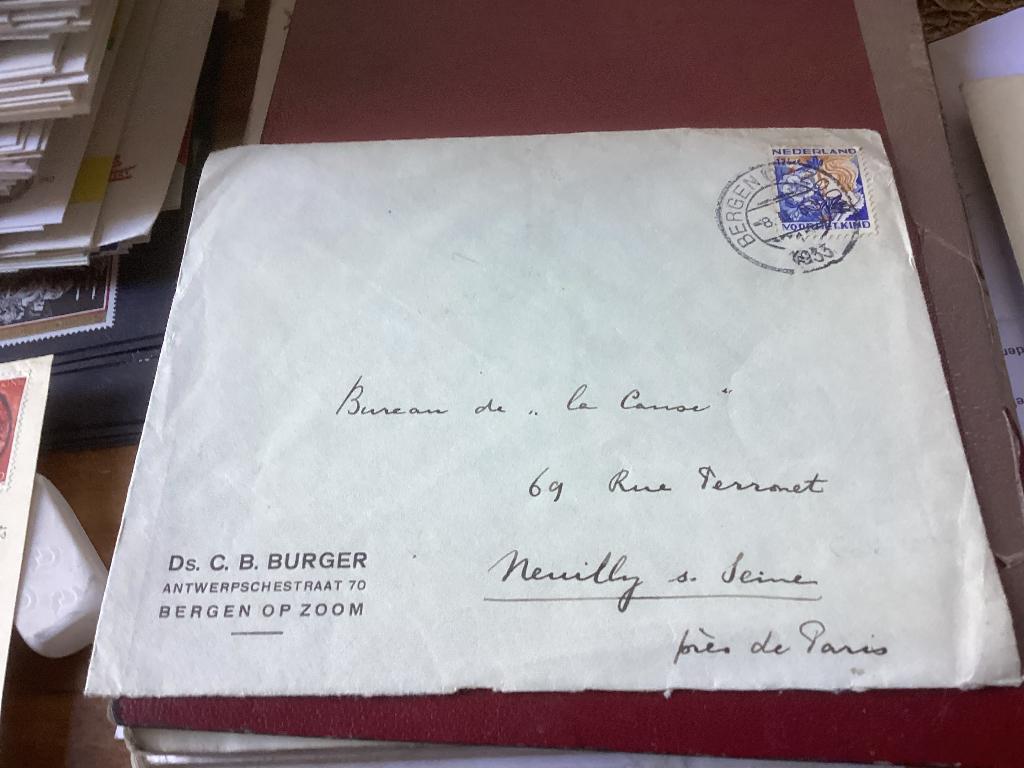 NEDERLAND
VOOR HET KIND
BERGEN
-8.
1933
Bureau de „ la Cause "
69 Rue Perronet
Neuilly s. Seine
près de Paris
Ds. C. B. BURGER
ANTWERPSCHESTRAAT 70
BERGEN OP ZOOM